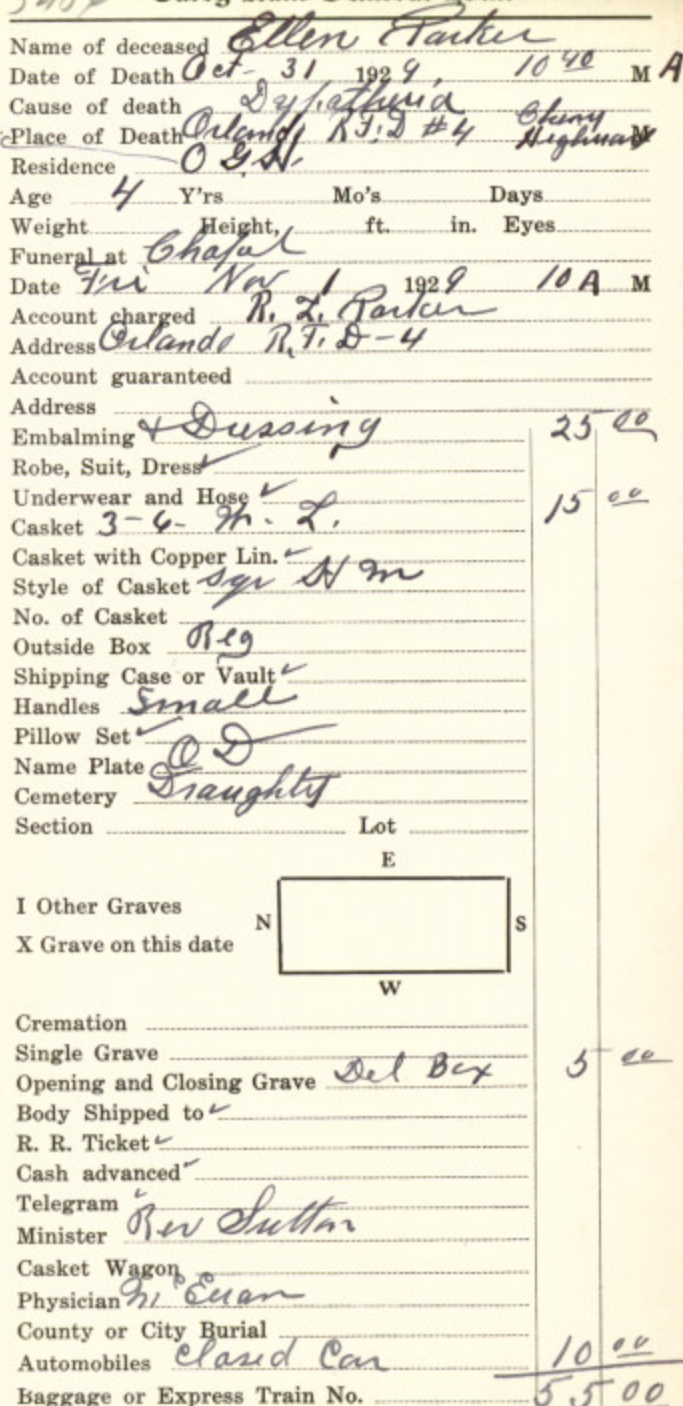 Name of deceased Ellen Parker
Date of Death Oct- 31 1929, 10 40 M A
Cause of death Dypatheria
Place of Death Orlando R.F.D #4 Cheney Highway M
Residence O G H.
Age 4 Y'rs Mo's Days
Weight Height, ft. in. Eyes
Funeral at Chapel
Date Fri Nov 1 1929 10 A M
Account charged R. L. Parker
Address Orlando R.F.D-4
Account guaranteed
Address
Embalming & Dressing 25 00
Robe, Suit, Dress ✓
Underwear and Hose ✓
Casket 3-6- W. L. 15 00
Casket with Copper Lin. ✓
Style of Casket Sqr H M
No. of Casket
Outside Box Reg
Shipping Case or Vault ✓
Handles Small
Pillow Set ✓
Name Plate O D
Cemetery Draughty
Section Lot
E
I Other Graves
N S
X Grave on this date
W
Cremation
Single Grave
Opening and Closing Grave Del Box 5 00
Body Shipped to ✓
R. R. Ticket ✓
Cash advanced ✓
Telegram ✓
Minister Rev Sutton
Casket Wagon
Physician McEuan
County or City Burial
Automobiles Closed Car 10 00
Baggage or Express Train No. 55 00